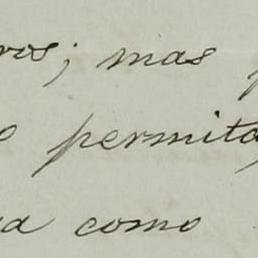 ros; mas
permita,
a como